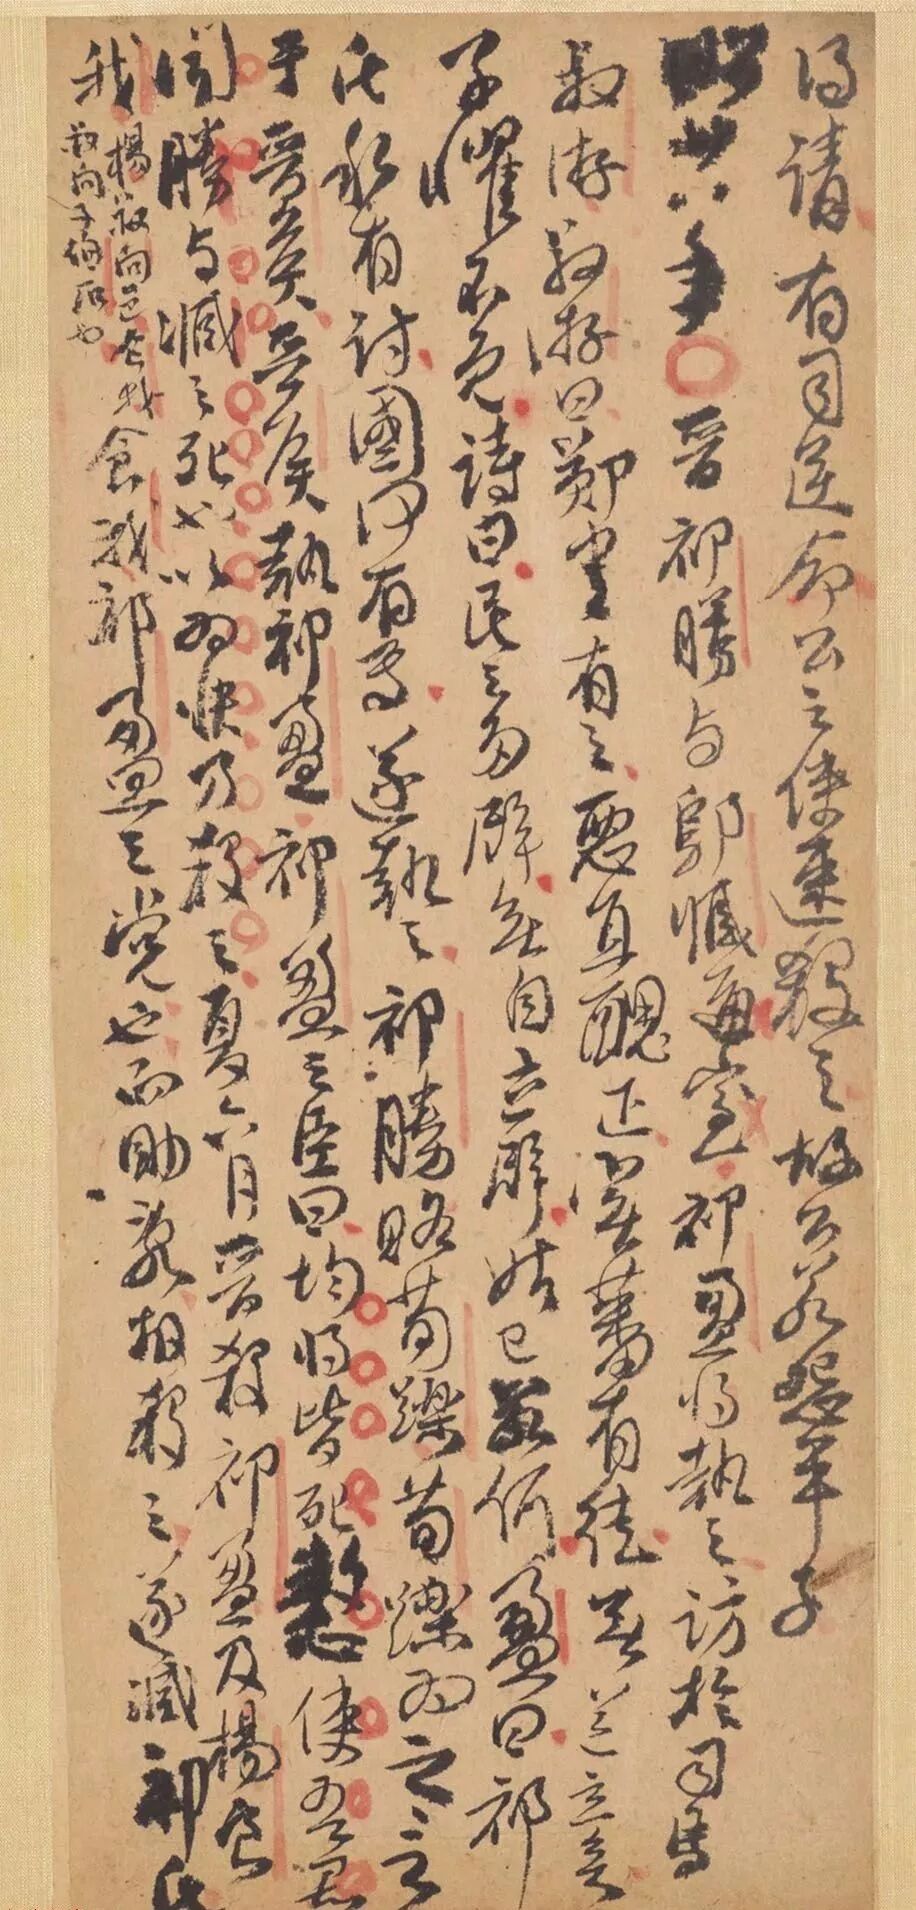 得請有司逆命公之使速殺之故公若怨平子
昭廿八年晉祁勝与鄔臧通室祁盈將執之訪於司馬
叔游叔游曰鄭書有之惡直醜正實蕃有徒無道立矣
子懼不免詩曰民之多辟無自立辟姑已若何盈曰祁
氏私有討國何有焉遂執之祁勝賂荀躒荀躒為之言
于晉矦晉矦執祁盈祁盈之臣曰均將皆死憖使吾君
聞勝与臧之死也以為快乃殺之夏六月晉殺祁盈及楊食
我楊叔向邑食我叔向子伯石也食我祁盈之党也而助亂故殺之遂滅祁氏